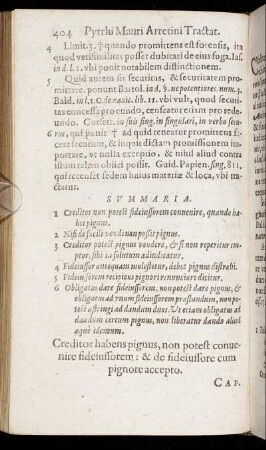 404 Pyrrhi Mauri Arretini Tractat.
4 Limit. 3. † quando promittens est forensis, ita
quod verisimiliter posset dubitari de eius fuga. Ias.
in d. l. 1. vbi ponit notabilem distinctionem.
5 Quid autem sit securitas, & securitatem pro
mittere, ponunt Bartol. in d. §. ne potentiores. num. 3.
Bald. in l. 1. C. de nauic. lib. 11. vbi vult, quod securi
tas concessa pro eundo, censeatur etiam pro rede
undo. Corsett. in suis sing. in singulari, in verbo secu
6 rus, qui ponit † ad quid teneatur promittens fa
cere securum, & inquit dictam promissionem im
portare, vt nulla exceptio, & nihil aliud contra
istum talem obiici possit. Guid. Papien. sing. 811.
qui recenset sedem huius materiæ & loca, vbi tra
ctatur.
SVMMARIA.
1 Creditor non potest fideiussorem conuenire, quando ha
bet pignus.
2 Nisi de facili vendi non possit pignus.
3 Creditor potest pignus vendere, & si non reperitur em
ptor, sibi in solutum adiudicatur.
4 Fideiussor antequam molestetur, debet pignus distrahi.
5 Fideiussorem recipiens pignori renunciare dicitur.
6 Obligatus dare fideiussorem, non potest dare pignus, &
obligatus ad vnum fideiussorem præstandum, non po
test astringi ad dandum duos. Vt etiam obligatus ad
dandum certum pignus, non liberatur dando aliud
æquè idoneum.
Creditor habens pignus, non potest conue
nire fideiussorem: & de fideiussore cum
pignore accepto.
CAP.